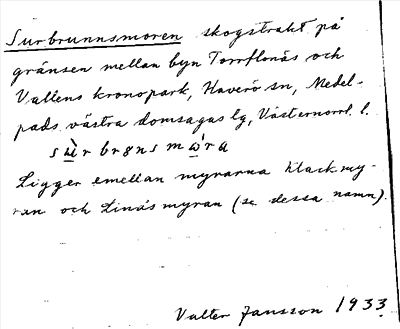 Surbrunnsmoren skogstrakt på
gränsen mellan byn Torrflonäs och
Vallens kronopark, Haverö sn, Medel-
pads västra domsagas lg, Västernorrl. l.
sùrbrønsmὼra
Ligger emellan myrarna Klackmy-
ran och Linåsmyran (se dessa namn).
Valter Jansson 1933.